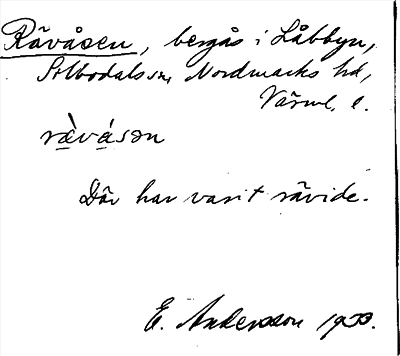 Rävåsen, bergås i Låbbyn,
Silbodals sn, Nordmarks hd,
Värml. l.
rä̀vá̀sən
Där har varit rävide.
E. Andersson 1933.